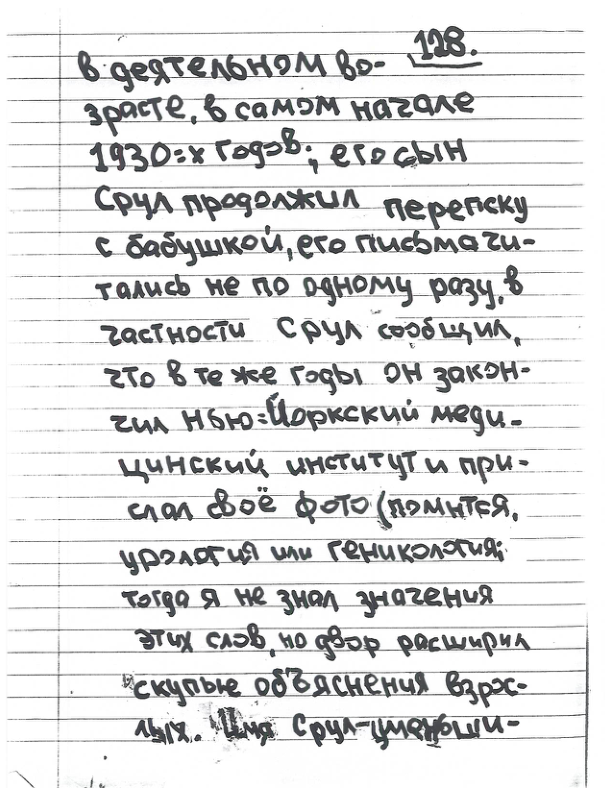 128.
в деятельном во-
зрасте, в самом начале
1930=х годов; его сын
Срул продолжил перепску
с бабушкой, его письма чи-
тались не по одному разу, в
частности Срул сообщил,
что в те же годы он закон-
чил Нью=Йоркский меди-
цинский институт и при-
слал своё фото (помнтся,
урология или геникология;
тогда я не знал значения
этих слов, но двор расширил
скупые объяснения взрос-
лых. Имя Срул-уменьши-